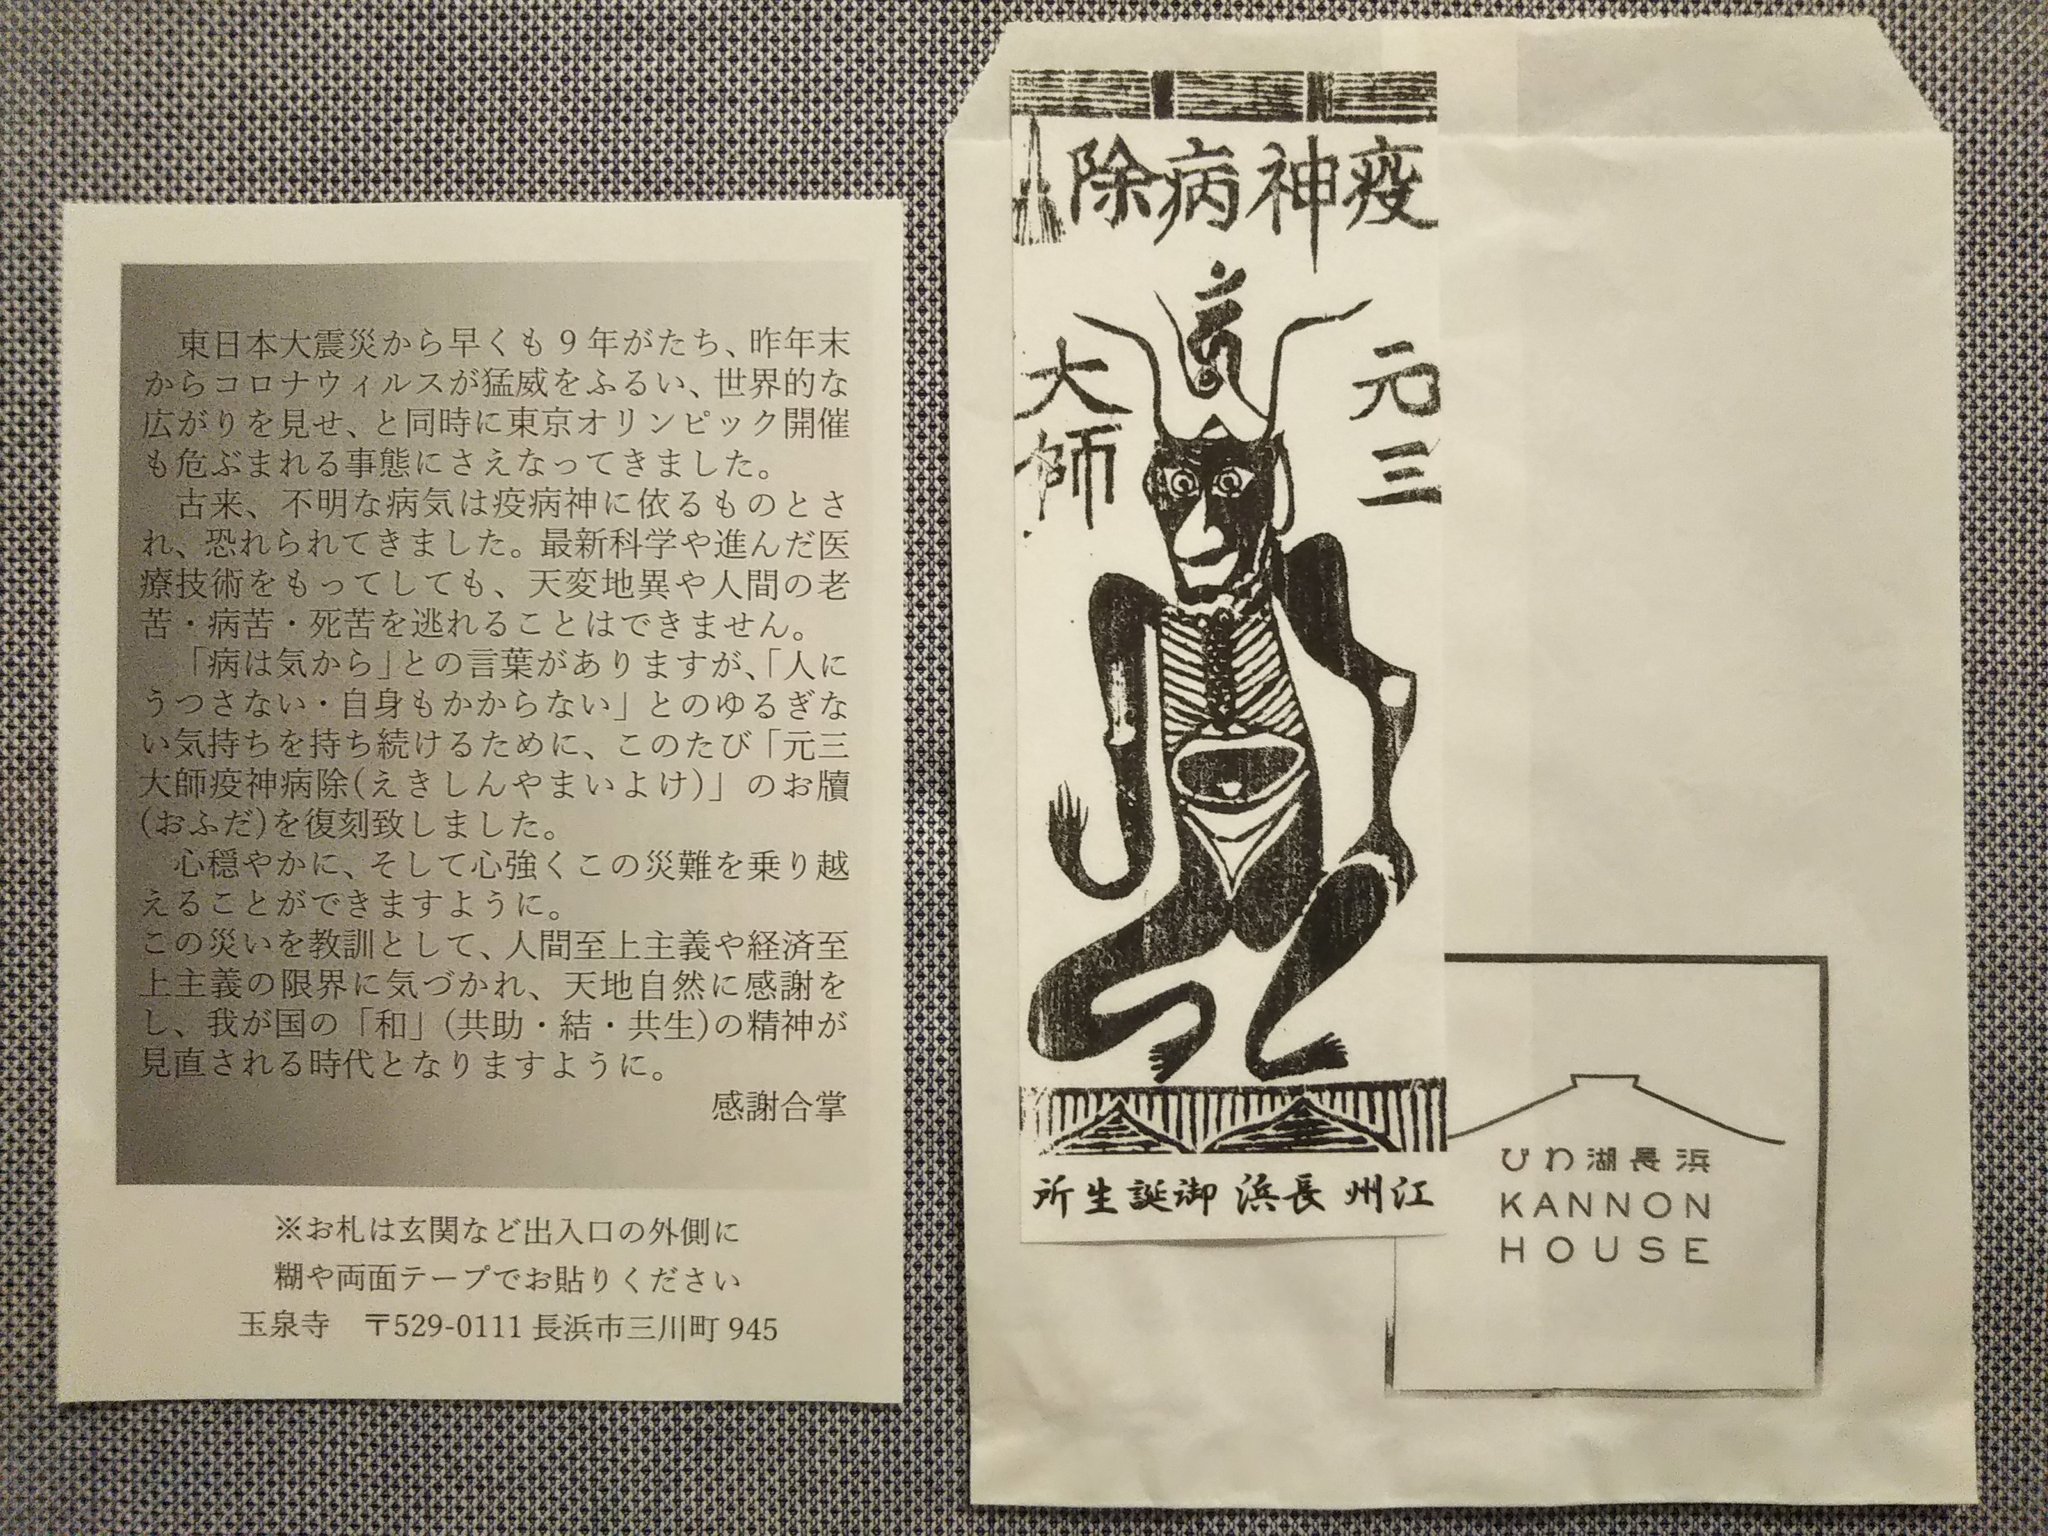 東日本大震災から早くも９年がたち、昨年末
からコロナウィルスが猛威をふるい、世界的な
広がりを見せ、と同時に東京オリンピック開催
も危ぶまれる事態にさえなってきました。
　古来、不明な病気は疫病神に依るものとさ
れ、恐れられてきました。最新科学や進んだ医
療技術をもってしても、天変地異や人間の老
苦・病苦・死苦を逃れることはできません。
　「病は気から」との言葉がありますが、「人に
うつさない・自身もかからない」とのゆるぎな
い気持ちを持ち続けるために、このたび「元三
大師疫神病除(えきしんやまいよけ)」のお牘
(おふだ)を復刻致しました。
　心穏やかに、そして心強くこの災難を乗り越
えることができますように。
この災いを教訓として、人間至上主義や経済至
上主義の限界に気づかれ、天地自然に感謝を
し、我が国の「和」(共助・結・共生)の精神が
見直される時代となりますように。
感謝合掌
※お札は玄関など出入口の外側に
糊や両面テープでお貼りください
玉泉寺　〒529-0111 長浜市三川町 945
疫神病除
元三
大師
江州長浜御誕生所
びわ湖長浜
KANNON
HOUSE